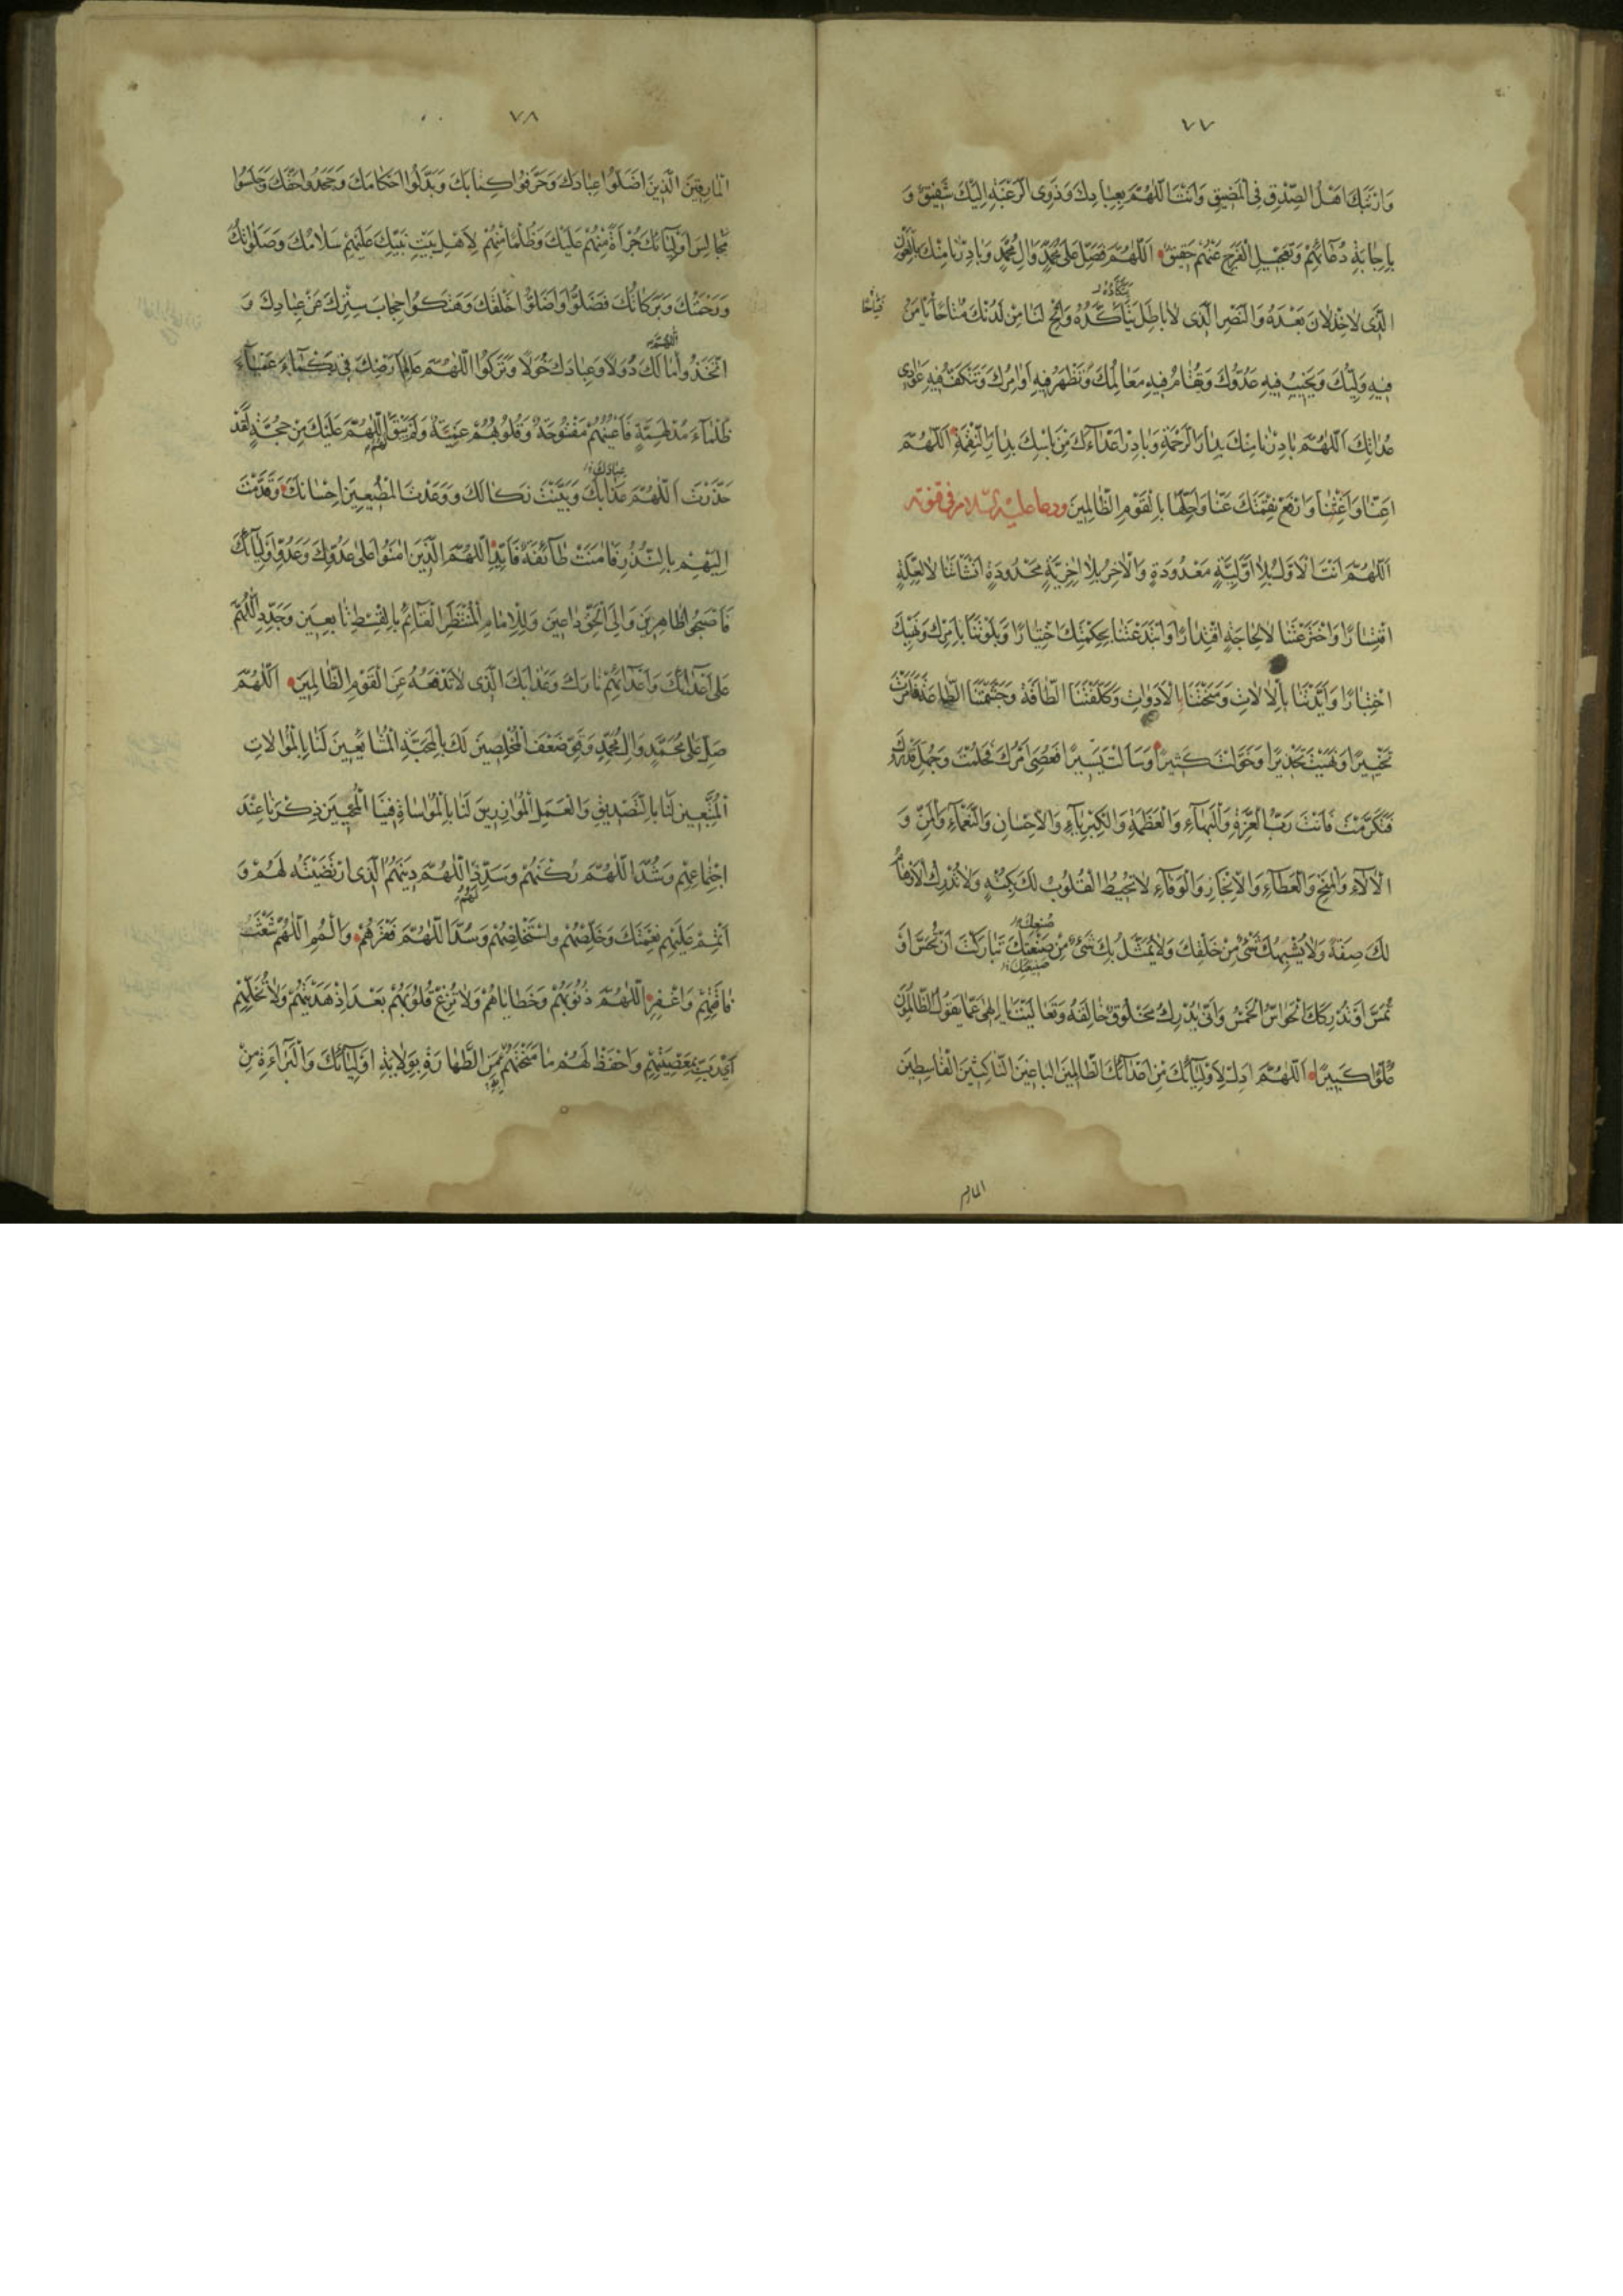 ٧٧
وَارْتَبَكَ اَهْلُ الصِّدْقِ فِى الْمَضِيقِ وَاَنْتَ اللّٰهُمَّ بِعِبَادِكَ وَذَوِى الرَّغْبَةِ اِلَيْكَ شَفِيقٌ وَ
بِاِجَابَةِ دُعَائِهِمْ وَتَعْجِيلِ الْفَرَجِ عَنْهُمْ حَقِيقٌ اَللّٰهُمَّ فَصَلِّ عَلٰى مُحَمَّدٍ وَاٰلِ مُحَمَّدٍ وَبَادِرْنَا مِنْكَ بِالْعَوْنِ
الَّذِى لَا خِذْلَانَ بَعْدَهُ وَالنَّصْرِ الَّذِى لَا بَاطِلَ يَتَأَكَّدُهُ وَاَتِحْ لَنَا مِنْ لَدُنْكَ مُتَاحًا يَأْمَنُ
فِيهِ وَلِيُّكَ وَيَخِيبُ فِيهِ عَدُوُّكَ وَيُقَامُ فِيهِ مَعَالِمُكَ وَتَظْهَرُ فِيهِ اَوَامِرُكَ وَتَنْكَفُّ فِيهِ عَوَادِى
عِدَاتِكَ اَللّٰهُمَّ بَادِرْنَا مِنْكَ بِدَارِ الرَّحْمَةِ وَبَادِرْ اَعْدَاءَكَ مِنْ بَأْسِكَ بِدَارِ النِّقْمَةِ اَللّٰهُمَّ
اَعِنَّا وَاَغِثْنَا وَارْفَعْ نِقْمَتَكَ عَنَّا وَاَحِلَّهَا بِالْقَوْمِ الظَّالِمِينَ ودعا عليه السلام فى قنوته
اَللّٰهُمَّ اَنْتَ الْاَوَّلُ بِلَا اَوَّلِيَّةٍ مَعْدُودَةٍ وَالْاٰخِرُ بِلَا اٰخِرِيَّةٍ مَحْدُودَةٍ اَنْشَأْتَنَا لَا لِعِلَّةٍ
اقْتِسَارًا وَاخْتَرَعْتَنَا لَا لِحَاجَةٍ اقْتِدَارًا وَابْتَدَعْتَنَا بِحِكْمَتِكَ اخْتِيَارًا وَبَلَوْتَنَا بِاَمْرِكَ وَنَهْيِكَ
اخْتِبَارًا وَاَيَّدْتَنَا بِالْاٰلَاتِ وَمَنَحْتَنَا بِالْاَدَوَاتِ وَكَلَّفْتَنَا الطَّاقَةَ وَجَشَّمْتَنَا الطَّاعَةَ فَاَمَرْتَ
تَخْيِيرًا وَنَهَيْتَ تَحْذِيرًا وَخَوَّلْتَ كَثِيرًا وَسَاَلْتَ يَسِيرًا فَعُصِىَ اَمْرُكَ فَحَلُمْتَ وَجُهِلَ قَدْرُكَ
فَتَكَرَّمْتَ فَاَنْتَ رَبُّ الْعِزَّةِ وَالْبَهَاءِ وَالْعَظَمَةِ وَالْكِبْرِيَاءِ وَالْاِحْسَانِ وَالنَّعْمَاءِ وَالْمَنِّ وَ
الْاٰلَاءِ وَالْمِنَحِ وَالْعَطَاءِ وَالْاِنْجَازِ وَالْوَفَاءِ لَا تُحِيطُ الْقُلُوبُ لَكَ بِكُنْهٍ وَلَا تُدْرِكُ الْاَوْهَامُ
لَكَ صِفَةً وَلَا يُشْبِهُكَ شَىْءٌ مِنْ خَلْقِكَ وَلَا يُمَثَّلُ بِكَ شَىْءٌ مِنْ صَنْعَتِكَ تَبَارَكْتَ اَنْ تُحَسَّ اَوْ
تُمَسَّ اَوْ تُدْرِكَكَ الْحَوَاسُّ الْخَمْسُ وَاَنّٰى يُدْرِكُ مَخْلُوقٌ خَالِقَهُ وَتَعَالَيْتَ يَا اِلٰهِى عَمَّا يَقُولُ الظَّالِمُونَ
عُلُوًّا كَبِيرًا اَللّٰهُمَّ اَدِلْ لِاَوْلِيَائِكَ مِنْ اَعْدَائِكَ الظَّالِمِينَ الْبَاغِينَ النَّاكِثِينَ الْقَاسِطِينَ
٧٨
الْمَارِقِينَ الَّذِينَ اَضَلُّوا عِبَادَكَ وَحَرَّفُوا كِتَابَكَ وَبَدَّلُوا اَحْكَامَكَ وَجَحَدُوا حَقَّكَ وَجَلَسُوا
مَجَالِسَ اَوْلِيَائِكَ جُرْأَةً مِنْهُمْ عَلَيْكَ وَظُلْمًا مِنْهُمْ لِاَهْلِ بَيْتِ نَبِيِّكَ عَلَيْهِمْ سَلَامُكَ وَصَلَوَاتُكَ
وَرَحْمَتُكَ وَبَرَكَاتُكَ فَضَلُّوا وَاَضَلُّوا خَلْقَكَ وَهَتَكُوا حِجَابَ سِتْرِكَ عَنْ عِبَادِكَ وَ
اتَّخَذُوا مَالَكَ دُوَلًا وَعِبَادَكَ خَوَلًا وَتَرَكُوا اللّٰهُمَّ عَالَمَ اَرْضِكَ فِى بَكْمَاءَ عَمْيَاءَ
ظَلْمَاءَ مُدْلَهِمَّةٍ فَاَعْيُنُهُمْ مَفْتُوحَةٌ وَقُلُوبُهُمْ عَمِيَّةٌ وَلَمْ تَبْقَ لَهُمُ اللّٰهُمَّ عَلَيْكَ مِنْ حُجَّةٍ لَقَدْ
حَذَّرْتَ اَللّٰهُمَّ عَذَابَكَ وَبَيَّنْتَ نَكَالَكَ وَوَعَدْتَ الْمُطِيعِينَ اِحْسَانَكَ وَقَدَّمْتَ
اِلَيْهِمْ بِالنُّذُرِ فَاٰمَنَتْ طَائِفَةٌ فَاَيِّدِ اللّٰهُمَّ الَّذِينَ اٰمَنُوا عَلٰى عَدُوِّكَ وَعَدُوِّ اَوْلِيَائِكَ
فَاَصْبَحُوا ظَاهِرِينَ وَاِلَى الْحَقِّ دَاعِينَ وَلِلْاِمَامِ الْمُنْتَظَرِ الْقَائِمِ بِالْقِسْطِ تَابِعِينَ وَجَدِّدِ اللّٰهُمَّ
عَلٰى اَعْدَائِكَ وَاَعْدَائِهِمْ نَارَكَ وَعَذَابَكَ الَّذِى لَا تَدْفَعُهُ عَنِ الْقَوْمِ الظَّالِمِينَ اَللّٰهُمَّ
صَلِّ عَلٰى مُحَمَّدٍ وَاٰلِ مُحَمَّدٍ وَقَوِّ ضَعْفَ الْمُخْلِصِينَ لَكَ بِالْمَحَبَّةِ الْمُشَايِعِينَ لَنَا بِالْمُوَالَاتِ
الْمُتَّبِعِينَ لَنَا بِالتَّصْدِيقِ وَالْعَمَلِ الْمُوَازِرِينَ لَنَا بِالْمُوَاسَاةِ فِينَا الْمُحِبِّينَ ذِكْرَنَا عِنْدَ
اجْتِمَاعِهِمْ وَشُدَّ اللّٰهُمَّ رُكْنَهُمْ وَسَدِّدْ لَهُمُ اللّٰهُمَّ دِينَهُمُ الَّذِى ارْتَضَيْتَهُ لَهُمْ وَ
اَتْمِمْ عَلَيْهِمْ نِعْمَتَكَ وَخَلِّصْهُمْ وَاسْتَخْلِصْهُمْ وَسُدَّ اللّٰهُمَّ فَقْرَهُمْ وَالْمُمِ اللّٰهُمَّ شَعَثَ
فَاقَتِهِمْ وَاغْفِرِ اللّٰهُمَّ ذُنُوبَهُمْ وَخَطَايَاهُمْ وَلَا تُزِغْ قُلُوبَهُمْ بَعْدَ اِذْ هَدَيْتَهُمْ وَلَا تُخَلِّهِمْ
اَىْ رَبِّ بِمَعْصِيَتِهِمْ وَاحْفَظْ لَهُمْ مَا مَنَحْتَهُمْ مِنَ الطَّهَارَةِ بِوِلَايَةِ اَوْلِيَائِكَ وَالْبَرَاءَةِ مِنْ